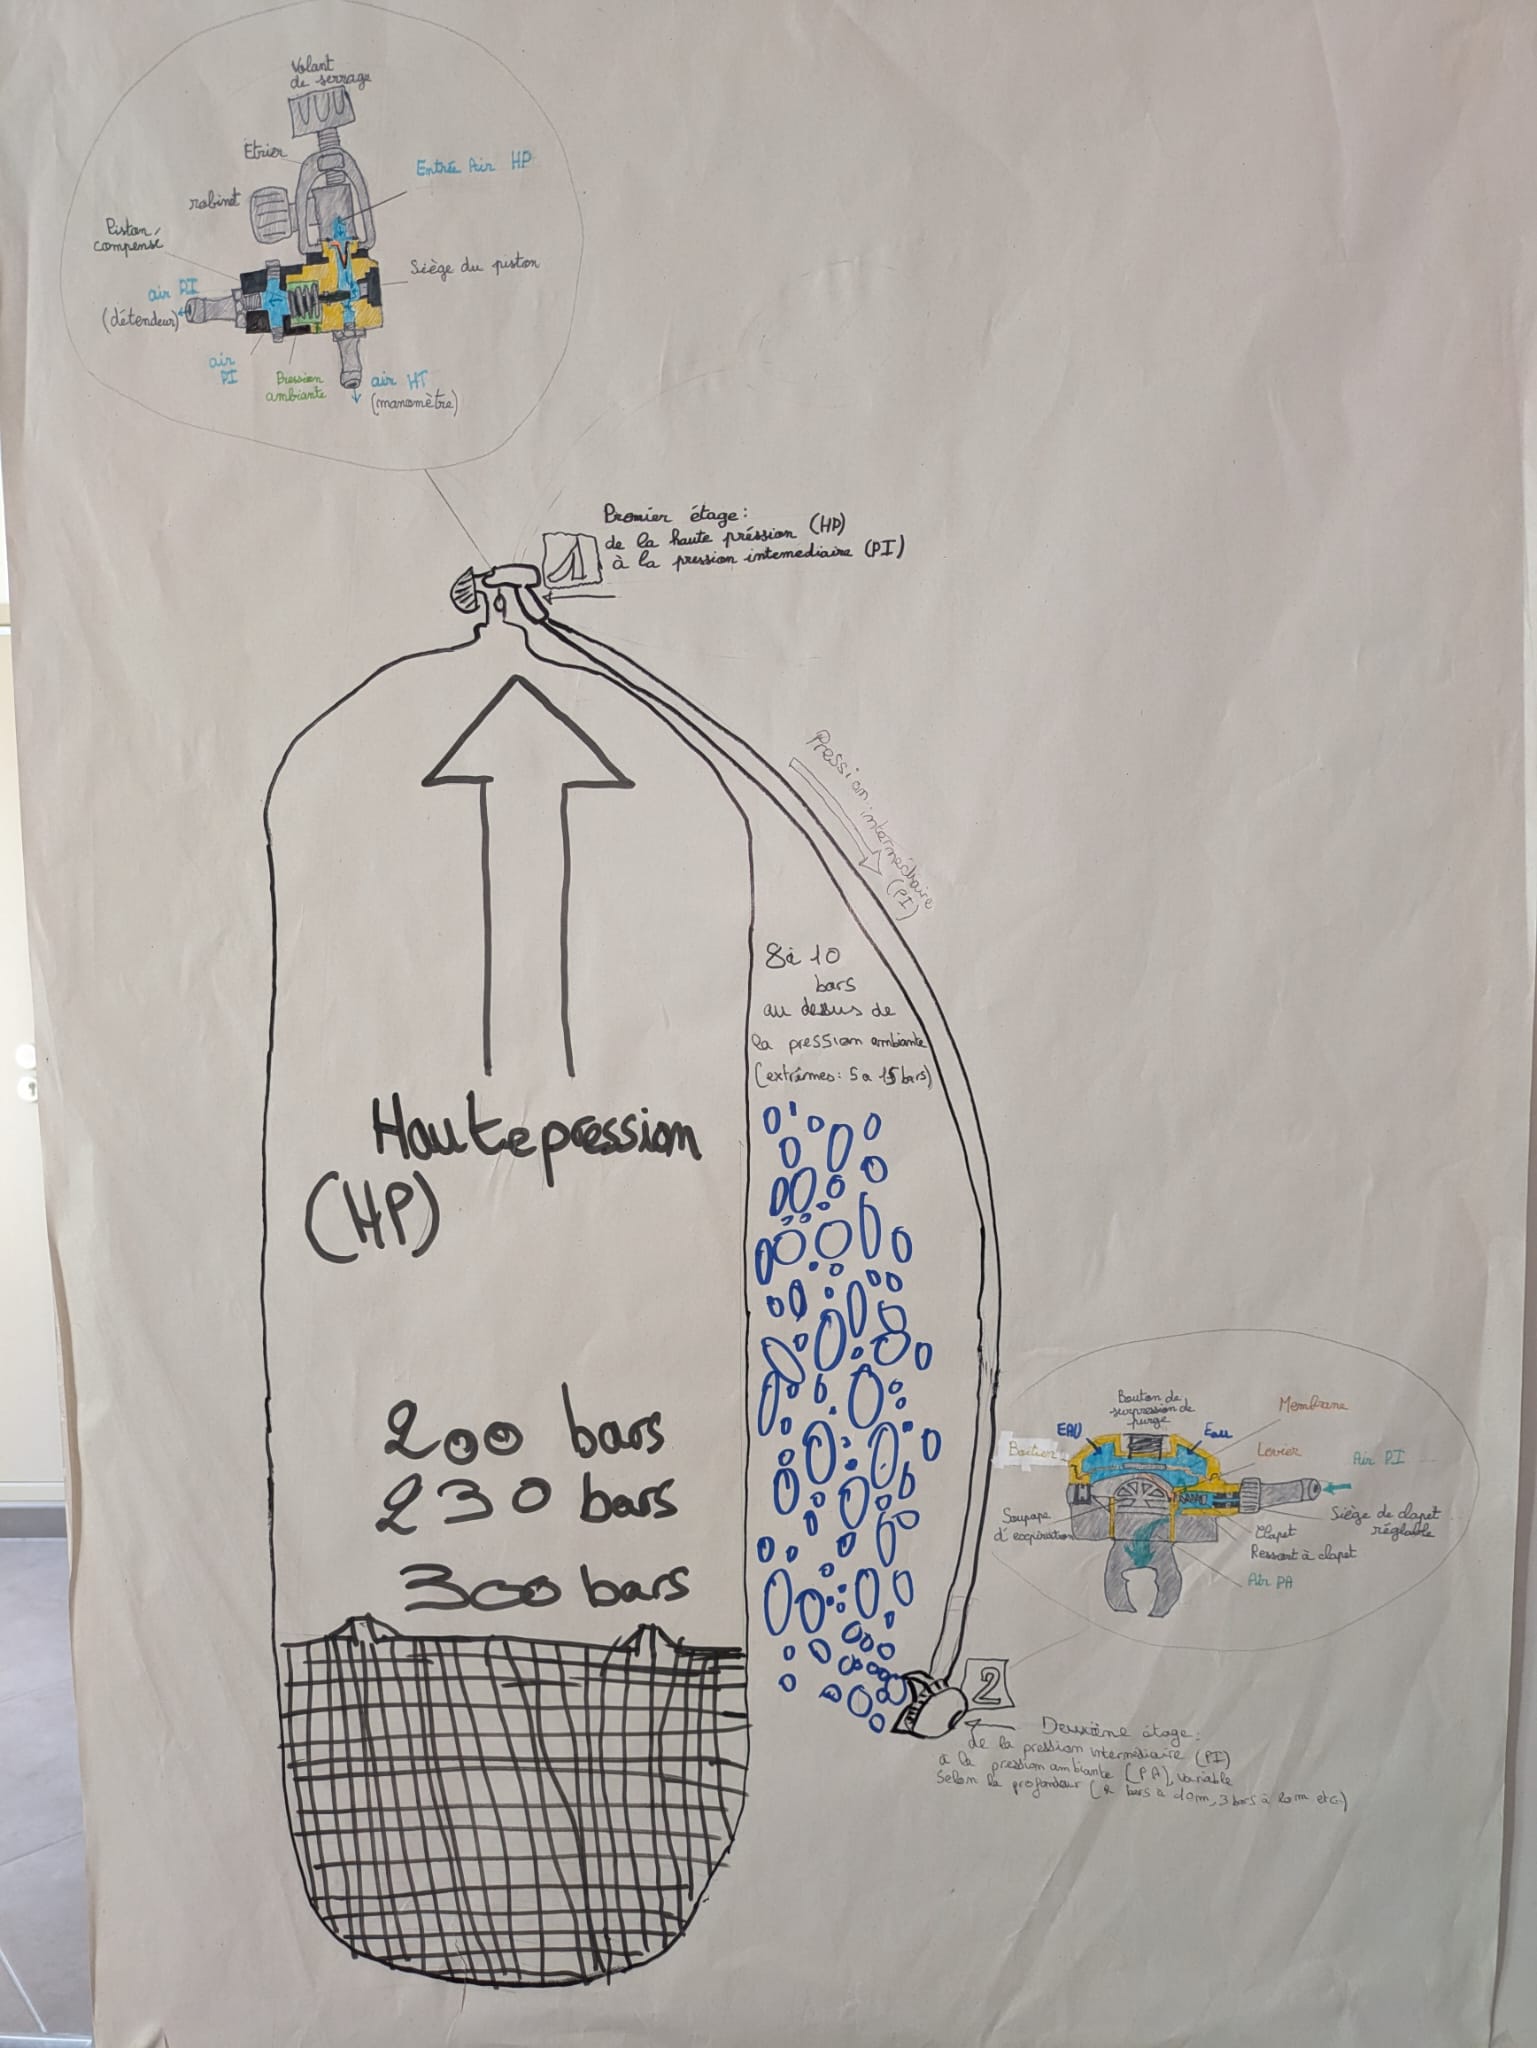 Volant
de serrage
Etrier
Entrée Air HP
robinet
Piston
compensé
Siège du piston
air PI
(détendeur)
air
PI
Pression
ambiante
air HT
(manomètre)
1
Premier étage:
de la haute préssion (HP)
à la pression intemediaire (PI)
Pression intermédiaire
(PI)
8 à 10
bars
au dessus de
la pression ambiante
(extrêmes: 5 a 15 bars)
Haute pression
(HP)
200 bars
230 bars
300 bars
Bouton de
surpression de
purge
Membrane
EAU
Eau
Boitier
Levier
Air PI
Soupape
d'expiration
Siège de clapet
réglable
Clapet
Ressort à clapet
Air PA
2
Deuxième étage:
de la pression intermédiaire (PI)
a la pression ambiante (PA), variable
Selon la profondeur (2 bars à 10m, 3 bars à 20m etc.)